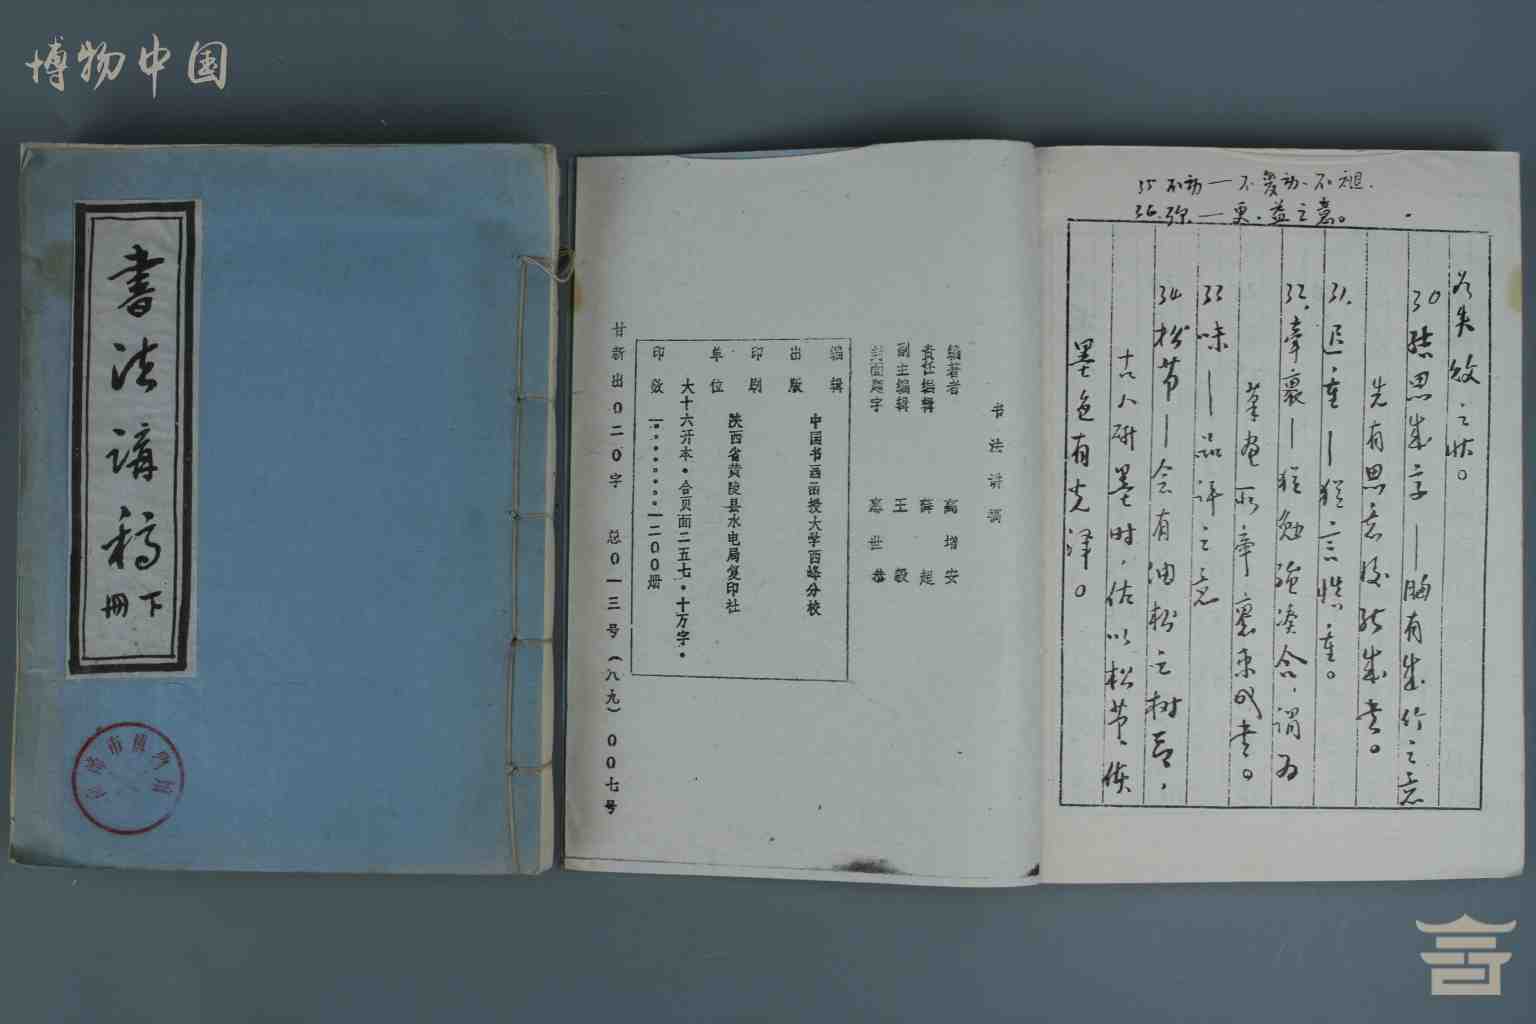 博物中国
書法講稿
下冊
书法讲稿
编著者 高增安
责任编辑 薛起
副主编辑 王毅
封面题字 惠世恭
编辑 中国书画函授大学西峰分校
出版
印刷 陕西省黄陵县水电局复印社
单位
大十六开本·合页面二五七·十万字·
印数 一——一二00册
甘新出0二0字 总0一三号(八九)00七号
35 不动—不变动、不褪.
36.弥.—更.益之意。
为失效之状。
30 结思成字—胸有成竹之意
先有思意后能成者。
31. 迟重—犹言慎重。
32. 牵裹—犹勉强凑合,谓为
笔画所牵裹束成者。
33 味—品评之意
34 松节—含有油松之树节,
古人研墨时,佐以松节、使
墨色有光泽。